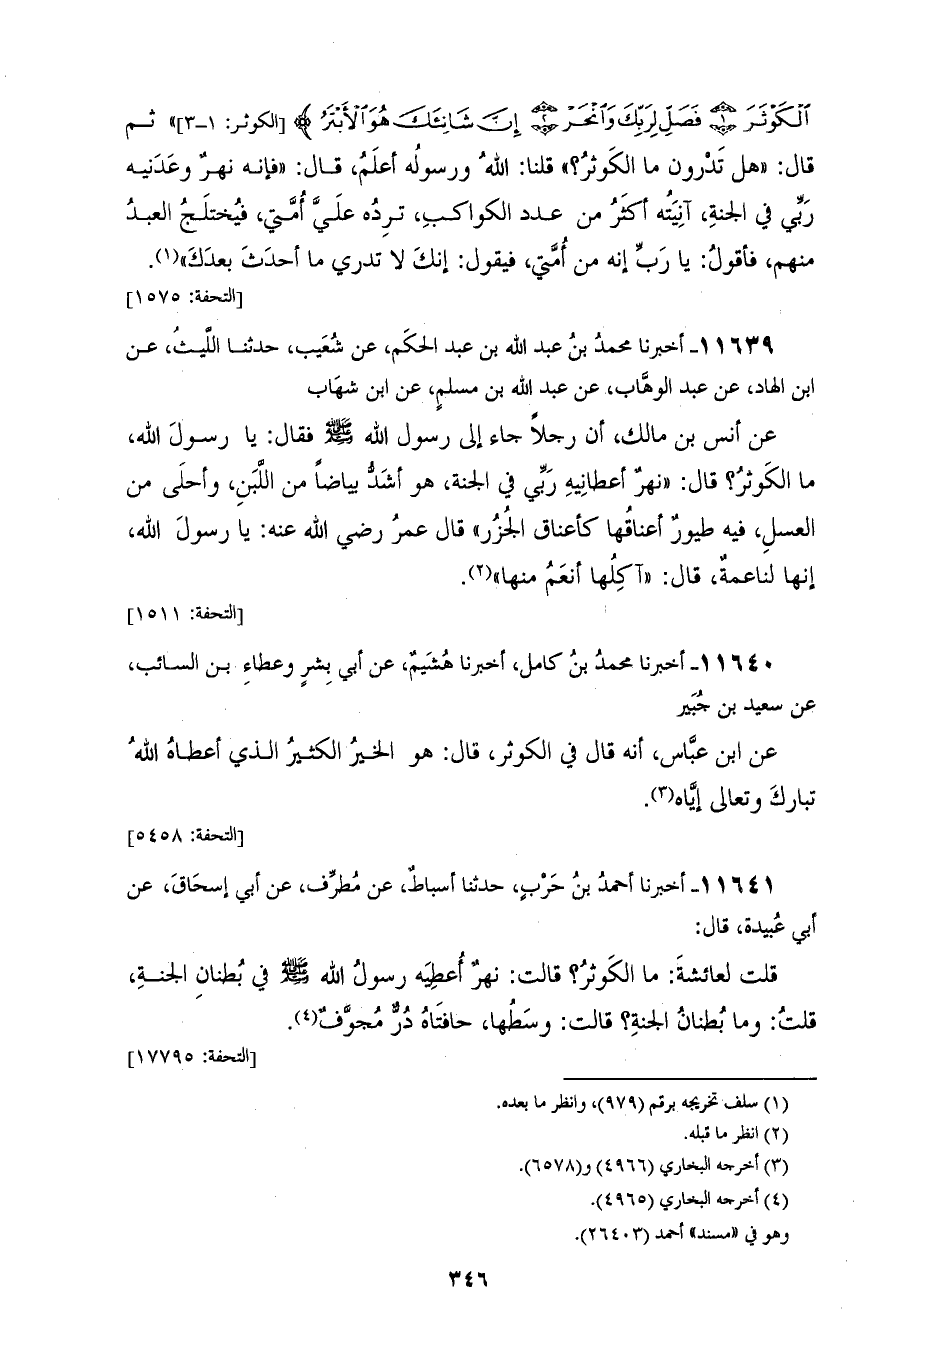 ٱلْكَوْثَرَ ۝١ فَصَلِّ لِرَبِّكَ وَٱنْحَرْ ۝٢ إِنَّ شَانِئَكَ هُوَ ٱلْأَبْتَرُ﴾ [الكوثر: ١-٣]» ثم
قال: «هل تَدْرون ما الكَوثرُ؟» قلنا: اللهُ ورسولُه أعلَمُ، قال: «فإنه نهرٌ وعَدَنيه
رَبِّي في الجنةِ، آنِيَتُه أكثَرُ من عدد الكواكبِ، ترِدُه علَيَّ أُمَّتي، فيُختلَجُ العبدُ
منهم، فأقولُ: يا رَبِّ إنه من أُمَّتي، فيقول: إنكَ لا تدري ما أحدَثَ بعدَكَ»(١).
[التحفة: ١٥٧٥]
١١٦٣٩- أخبرنا محمدُ بنُ عبد الله بن عبد الحكَم، عن شُعَيب، حدثنا اللَّيثُ، عن
ابن الهاد، عن عبد الوهَّاب، عن عبد الله بن مسلمٍ، عن ابن شهَاب
عن أنس بن مالك، أن رجلاً جاء إلى رسول الله ﷺ فقال: يا رسولَ الله،
ما الكَوثرُ؟ قال: «نهرٌ أعطانِيهِ رَبِّي في الجنة، هو أشَدُّ بياضاً من اللَّبَنِ، وأحلَى من
العسلِ، فيه طيورٌ أعناقُها كأعناق الجُزُر» قال عمرُ رضي الله عنه: يا رسولَ الله،
إنها لناعمةٌ، قال: «آكِلُها أنعَمُ منها»(٢).
[التحفة: ١٥١١]
١١٦٤٠- أخبرنا محمدُ بنُ كامل، أخبرنا هُشَيمٌ، عن أبي بِشرٍ وعطاءِ بن السائب،
عن سعيد بن جُبَير
عن ابن عبَّاس، أنه قال في الكوثر، قال: هو الخيرُ الكثيرُ الذي أعطاهُ اللهُ
تباركَ وتعالى إيَّاه(٣).
[التحفة: ٥٤٥٨]
١١٦٤١- أخبرنا أحمدُ بنُ حَرْبٍ، حدثنا أسباطٌ، عن مُطرِّف، عن أبي إسحَاقَ، عن
أبي عُبيدة، قال:
قلت لعائشةَ: ما الكَوثرُ؟ قالت: نهرٌ أُعطِيَه رسولُ الله ﷺ في بُطنانِ الجنةِ،
قلتُ: وما بُطنانُ الجنةِ؟ قالت: وسَطُها، حافتَاهُ دُرٌّ مُجوَّفٌ(٤).
[التحفة: ١٧٧٩٥]
(١) سلف تخريجه برقم (٩٧٩)، وانظر ما بعده.
(٢) انظر ما قبله.
(٣) أخرجه البخاري (٤٩٦٦) و(٦٥٧٨).
(٤) أخرجه البخاري (٤٩٦٥).
وهو في «مسند» أحمد (٢٦٤٠٣).
٣٤٦